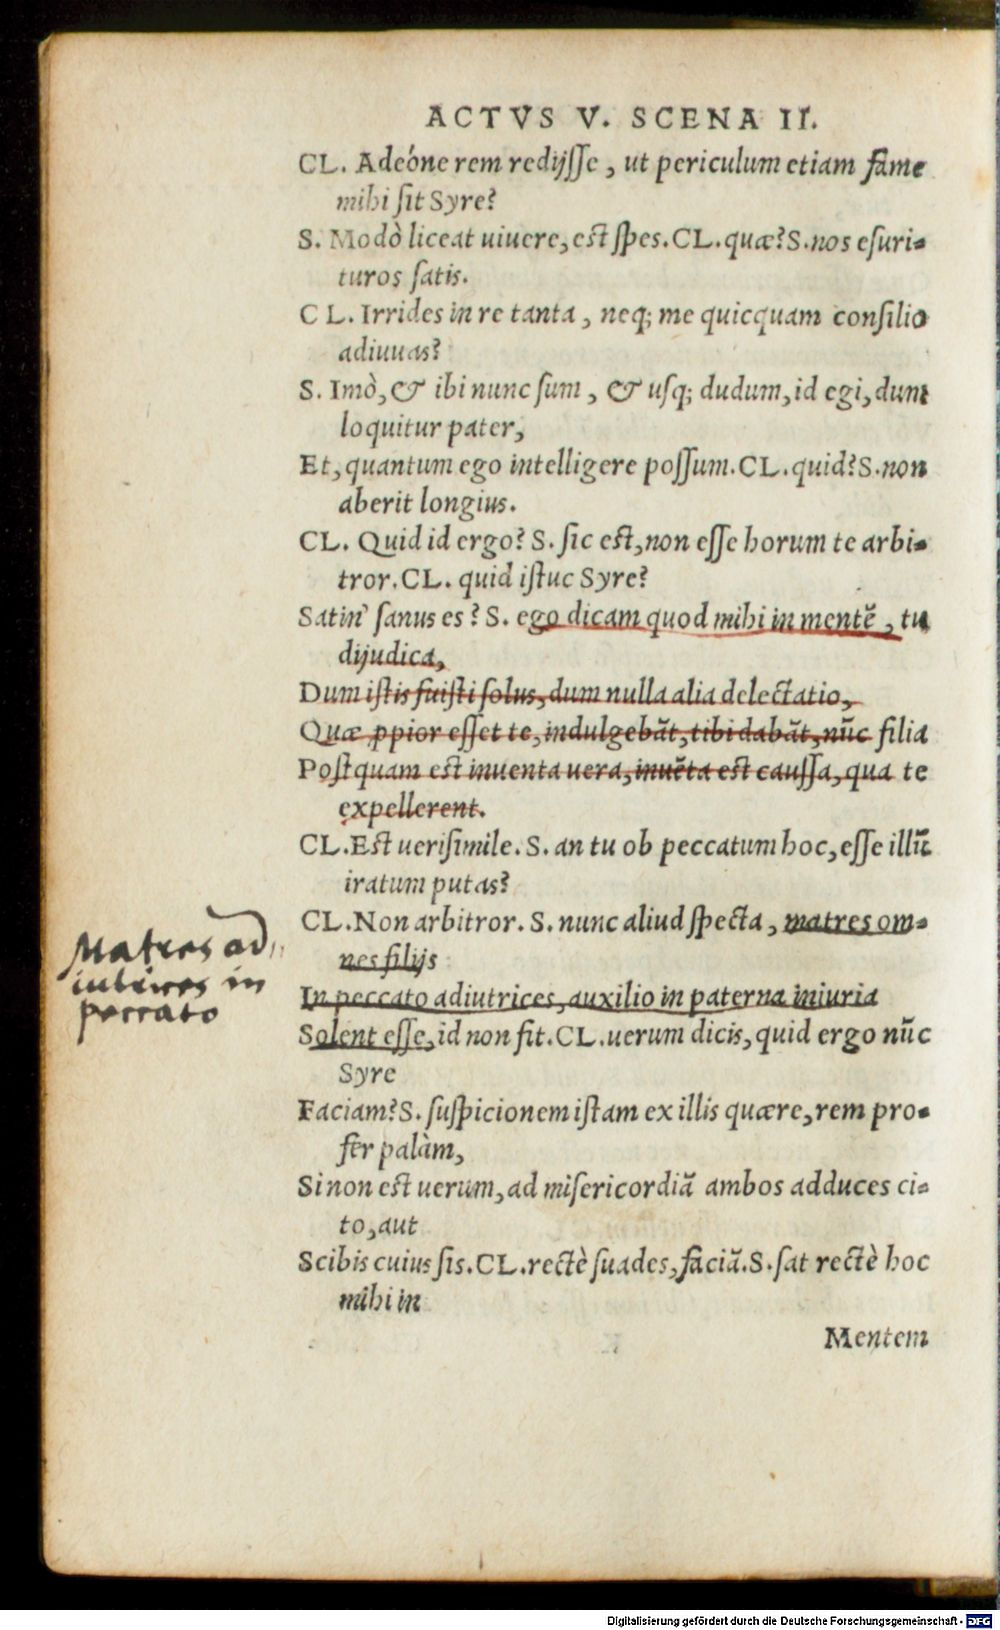 ACTVS V. SCENA II.
CL. Adeóne rem redijſſe, ut periculum etiam fame
mihi ſit Syre?
S. Modò liceat uiuere, eſt ſpes. CL. quæ? S. nos eſuri-
turos ſatis.
CL. Irrides in re tanta, neq; me quicquam conſilio
adiuuas?
S. Imò, & ibi nunc ſum, & uſq; dudum, id egi, dum
loquitur pater,
Et, quantum ego intelligere poſſum. CL. quid? S. non
aberit longius.
CL. Quid id ergo? S. ſic eſt, non eſſe horum te arbi-
tror. CL. quid iſtuc Syre?
Satin' ſanus es? S. ego dicam quod mihi in mentē, tu
dijudica,
Dum iſtis fuiſti ſolus, dum nulla alia delectatio,
Quæ ꝓpior eſſet te, indulgebāt, tibi dabāt, nūc filia
Poſtquam eſt inuenta uera, inuēta eſt cauſſa, qua te
expellerent.
CL. Eſt ueriſimile. S. an tu ob peccatum hoc, eſſe illū
iratum putas?
CL. Non arbitror. S. nunc aliud ſpecta, matres om-
nes filijs
In peccato adiutrices, auxilio in paterna iniuria
Solent eſſe, id non fit. CL. uerum dicis, quid ergo nūc
Syre
Faciam? S. ſuſpicionem iſtam ex illis quære, rem pro-
fer palàm,
Si non eſt uerum, ad miſericordiā ambos adduces ci-
to, aut
Scibis cuius ſis. CL. rectè ſuades, faciā. S. ſat rectè hoc
mihi in
Mentem
Matres ad
in
peccato
Digitalisierung gefördert durch die Deutsche Forschungsgemeinschaft - DFG